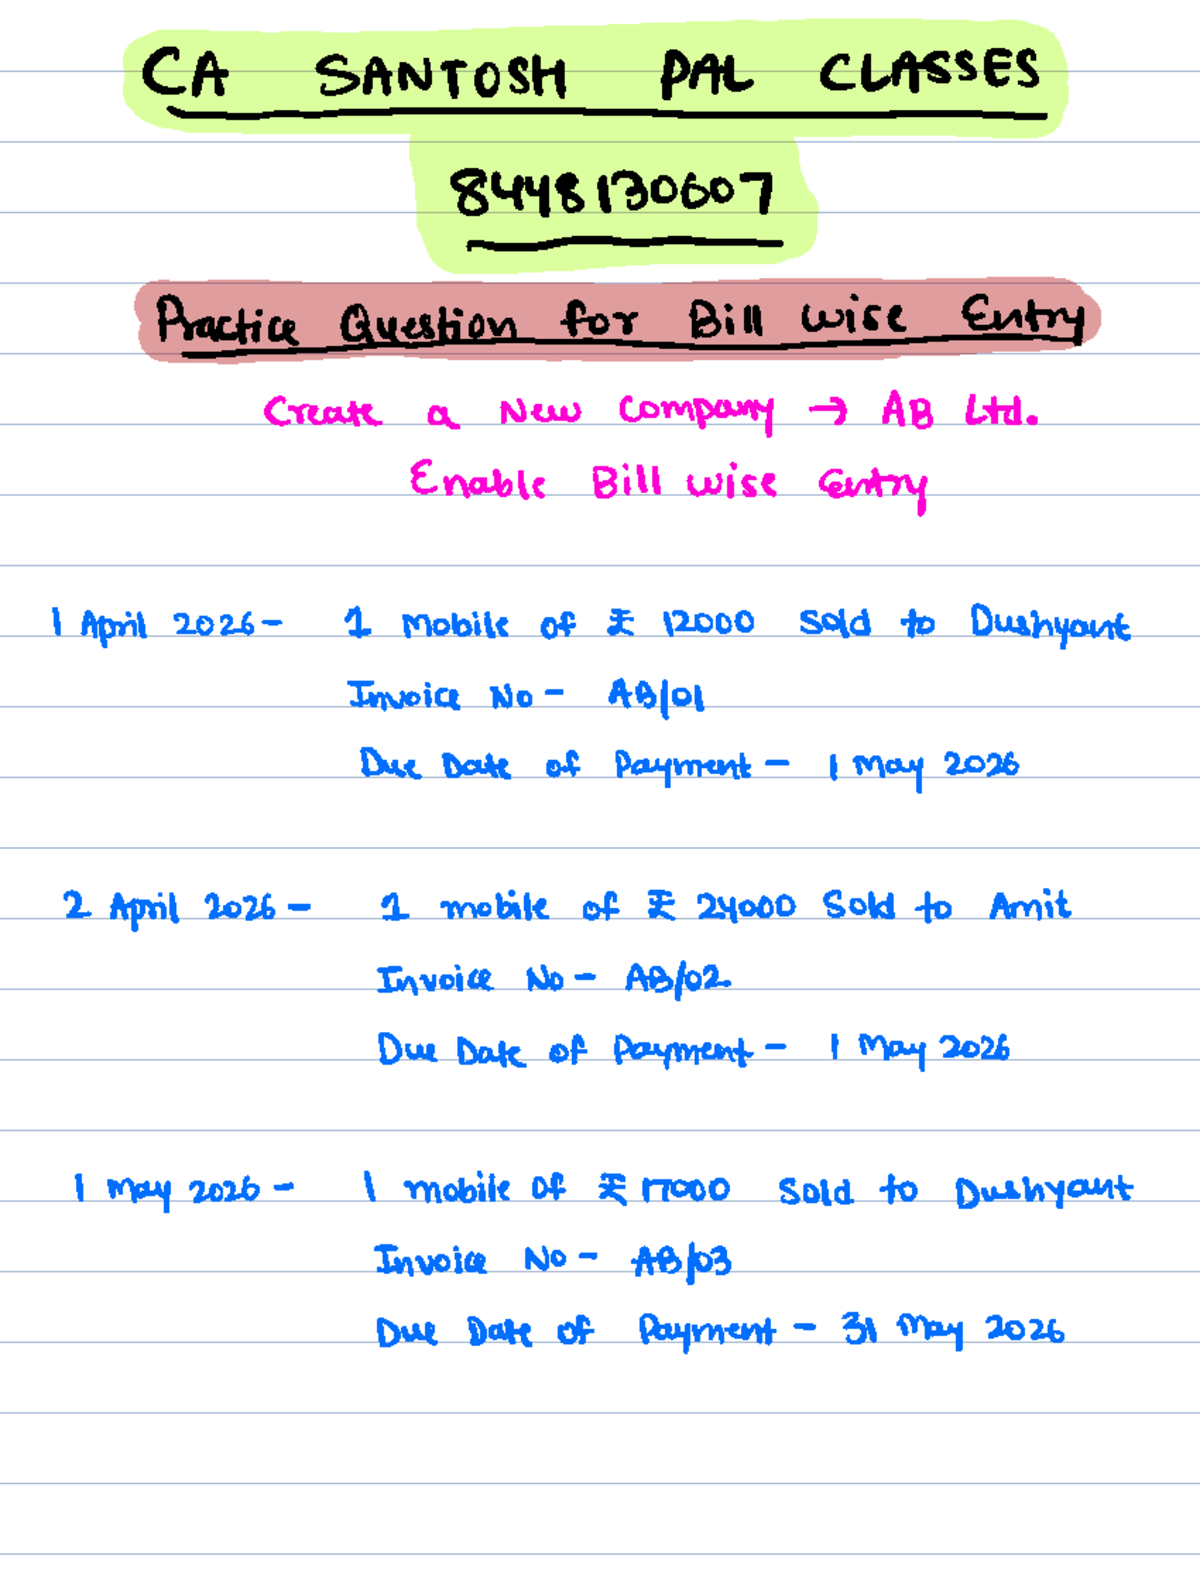 CA SANTOSH PAL CLASSES
8448130607
Practice Question for Bill wise Entry
Create a New Company → AB Ltd.
Enable Bill wise Entry
1 April 2026- 1 Mobile of ₹ 12000 Sold to Dushyant
Invoice No - AB/01
Due Date of Payment - 1 May 2026
2 April 2026 - 1 mobile of ₹ 24000 Sold to Amit
Invoice No - AB/02
Due Date of Payment - 1 May 2026
1 May 2026 - 1 mobile of ₹ 17000 Sold to Dushyant
Invoice No - AB/03
Due Date of Payment - 31 May 2026